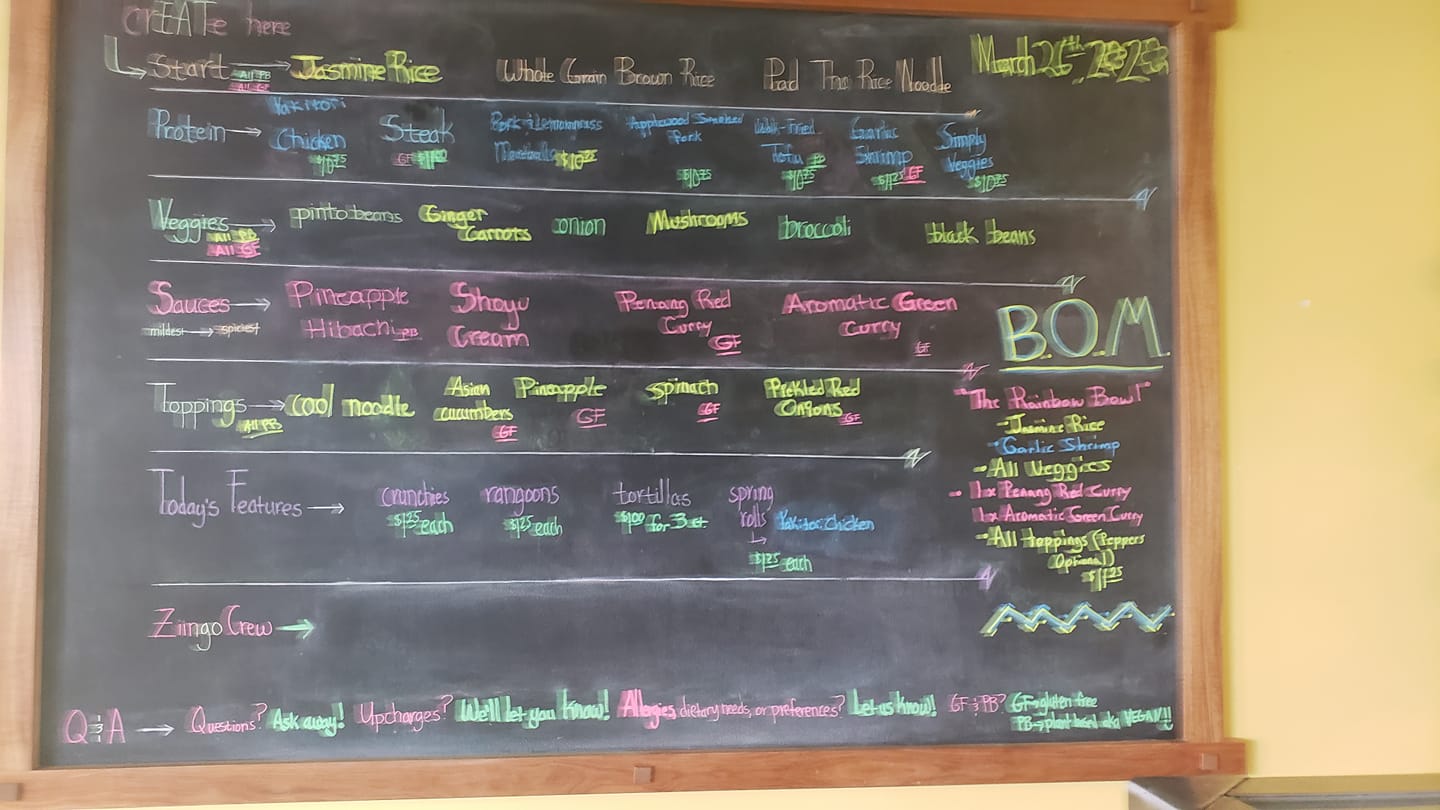 CREATE here
Start → Jasmine Rice Whole Grain Brown Rice Pad Thai Rice Noodle
All PB
All GF
March 26th
Protein → Yakitori Chicken $10.75 Steak GF Pork & Lemongrass Meatballs $10.75 Applewood Smoked Pork $10.75 Wok-Fried Tofu PB $10.75 Garlic Shrimp $11.25 GF Simply Veggies $10.75
Veggies → pinto beans Ginger Carrots onion Mushrooms broccoli black beans
All PB
All GF
Sauces → Pineapple Hibachi PB Shoyu Cream Penang Red Curry GF Aromatic Green Curry GF
mildest → spiciest
Toppings → cool noodle Asian cucumbers GF Pineapple GF spinach GF Pickled Red Onions GF
All PB
Today's Features → crunchies $1.25 each rangoons $1.25 each tortillas $1.00 for 3 spring rolls Yakitori Chicken $1.25 each
Ziingo Crew →
B.O.M
"The Rainbow Bowl"
- Jasmine Rice
- Garlic Shrimp
- All Veggies
- 1x Penang Red Curry
1x Aromatic Green Curry
- All toppings (Peppers
Optional)
$11.25
Q & A → Questions? Ask away! Upcharges? We'll let you know! Allergies, dietary needs, or preferences? Let us know! GF & PB? GF→gluten free
PB→plant based aka VEGAN!!